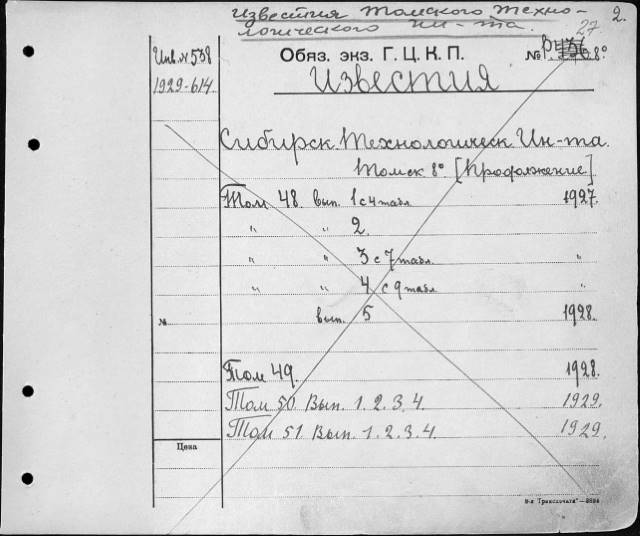 Известия Томского Техно-
логического ин-та.
27
2.
Инв. № 538
1929-614.
Обяз. экз. Г. Ц. К. П.
№
8°
Известия
Сибирск. Технологическ. Ин-та.
Томск 8° [Продолжение]
Том 48. вып. 1 с 4 табл. 1927.
" " 2.
" " 3 с 7 табл. "
" " 4 с 9 табл. "
№ вып. 5 1928.
Том 49. 1928.
Том 50. Вып. 1. 2. 3. 4. 1929.
Том 51. Вып. 1. 2. 3. 4. 1929.
Цена